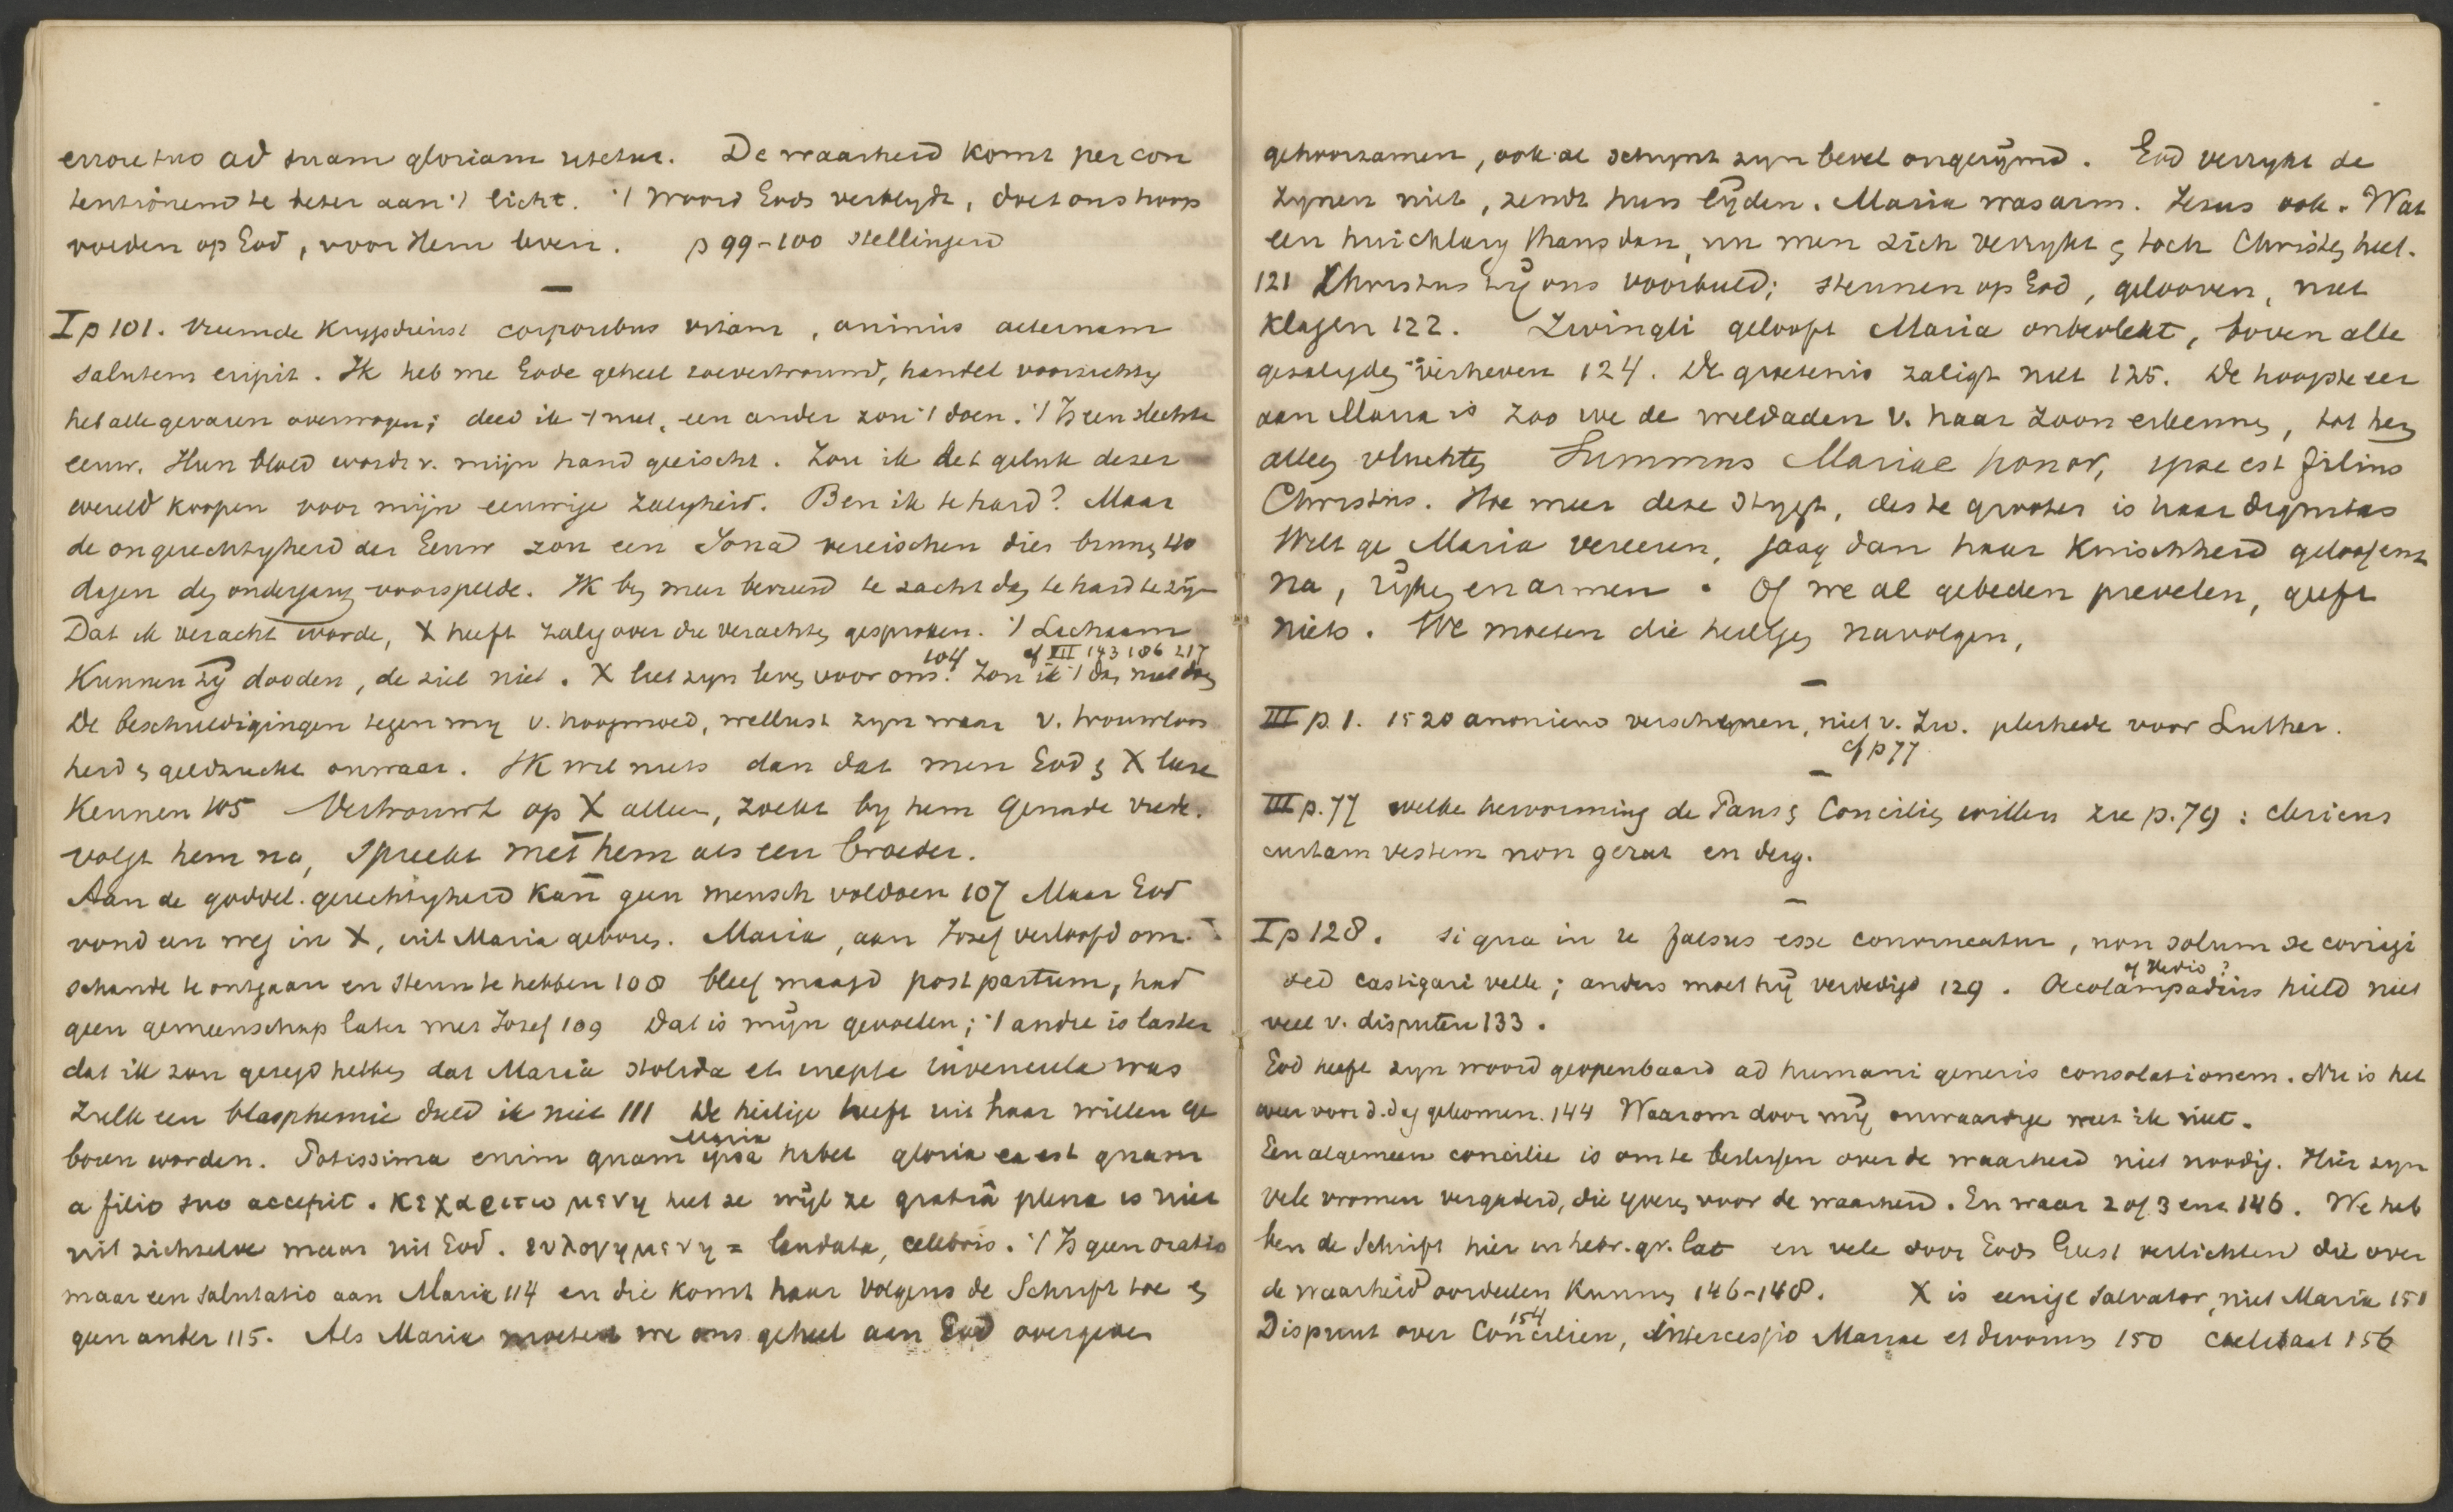 errore tuo ad suam gloriam utetur. De waarheid komt per con
tentionem te beter aan 't licht. 't Woord Gods verblijdt, doet ons hoop
voeden op God, voor Hem leven. p 99-100 stellingen
—
I p 101. Vreemde krijgsdienst corporibus vitam, animis aeternam
salutem eripit. Ik heb me Gode geheel toevertrouwd, handel voorzichtig
heb alle gevaren overwogen; deed ik 't niet, een ander zou 't doen. 't Is een slechte
eeuw. Hun bloed wordt v. mijn hand geeischt. Zou ik het geluk dezer
wereld koopen voor mijn eeuwige zaligheid. Ben ik te hard? Maar
de ongerechtigheid der Eeuw zou een Jona vereischen die binnen 40
dagen den ondergang voorspelde. Ik ben meer bevreesd te zacht dan te hard te zijn
Dat ik veracht worde, X heeft zalig over die verachten gesproken. 't Lichaam
kunnen zij dooden, de ziel niet. X liet zijn leven voor ons. 104 Zou ik 't dan niet doen cf VII 143 186 217
De beschuldigingen tegen mij v. hoogmoed, wellust zijn waar v. trouwloos
heid en geldzucht onwaar. Ik wil niets dan dat men God en X leere
kennen 105 Vertrouwt op X alleen, zoekt bij hem genade vrede.
volgt hem na, spreekt met hem als een broeder.
Aan de goddel. gerechtigheid kan geen mensch voldoen 107 Maar God
vond een weg in X, uit Maria geboren. Maria, aan Jozef verloofd om
schande te ontgaan en steun te hebben 108 bleef maagd post partum, had
geen gemeenschap later met Jozef 109 Dat is mijn gevoelen; 't andre is laster
dat ik zou gezegd hebben dat Maria stolida et inepta iuvencula was
Zulk een blasphemie duld ik niet 111 De heilige heeft uit haar willen ge
boren worden. Potissima enim quam ipsa Maria habet gloria ea est quam
a filio suo accepit. κεχαριτωμενη heet ze wijl ze gratiâ plena is niet
uit zichzelve maar uit God. ευλογημενη = laudata, celebris. 't Is geen oratio
maar een salutatio aan Maria 114 en die komt haar volgens de Schrift toe en
geen ander 115. Als Maria moeten we ons geheel aan God overgeven
gehoorzamen, ook al schijnt zijn bevel ongerijmd. God verrijkt de
zijnen niet, zendt hun lijden. Maria was arm. Jezus ook. Wat
een huichelarij thans dan, nu men zich verrijkt en toch Christen heet.
121 Christus zij ons voorbeeld; steunen op God, gelooven, niet
klagen 122. Zwingli gelooft Maria onbevlekt, boven alle
gezaligden verheven 124. De groetenis zaligt niet 125. De hoogste eer
aan Maria is zoo we de weldaden v. haar Zoon erkennen, tot hem
alleen vluchten Summus Mariae honor, ipse est filius
Christus. Hoe meer deze stijgt, des te grooter is haar dignitas
Wilt ge Maria vereeren, jaag dan haar kuischheid geloof enz
na, rijken en armen. Of we al gebeden prevelen, geeft
niets. We moeten die heiligen navolgen,
—
III p. 1. 1520 anoniem verschenen, niet v. Zw. pleitrede voor Luther.
cf p 77
—
III p. 77 welke hervorming de Paus en Conciliën willen zie p. 79: clericus
curtam vestem non gerat en derg.
—
I p 128. si qua in re falsus esse convincatur, non solum se corrigi
sed castigari velle; anders moet hij verdedigd 129. Oecolampadius of Hedio? hield niet
veel v. disputen 133.
God heeft zijn woord geopenbaard ad humani generis consolationem. Nu is het
weer voor d. dag gekomen. 144 Waarom door mij, onwaardige weet ik niet.
Een algemeen concilie is om te beslissen over de waarheid niet noodig. Hier zijn
vele vromen vergaderd, die ijveren voor de waarheid. En waar 2 of 3 enz 146. We heb
ben de Schrift hier in hebr. gr. lat en vele door Gods Geest verlichten die over
de waarheid oordeelen kunnen 146-148. X is eenige Salvator, niet Maria 151
Dispuut over Conciliën, 154 Intercessio Mariae et divorum 150 Caelibaat 156